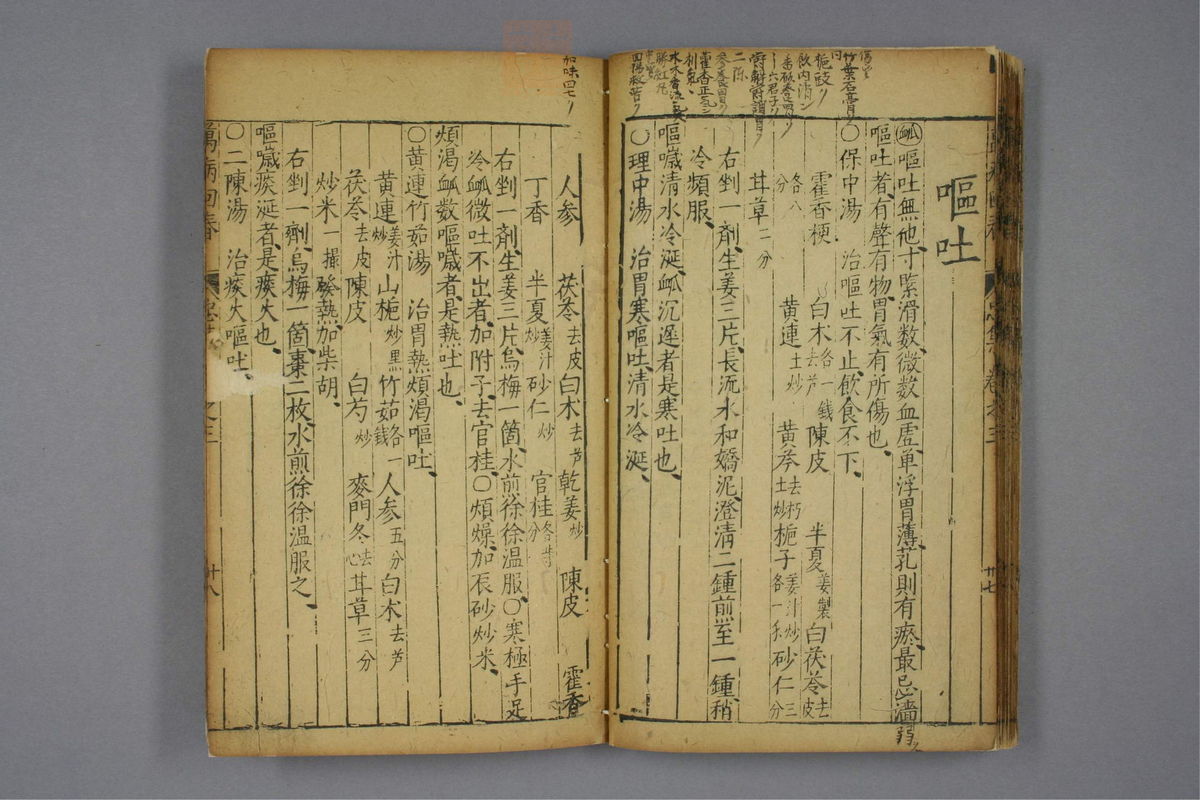 嘔吐
㊞嘔吐無他寸緊滑数微数血虛単浮胃薄芤則有瘀最忌濇弱
嘔吐者、有聲有物、胃氣有所傷也、
○保中湯 治嘔吐不止、飲食不下、
藿香梗 白术各一錢去芦 陳皮 半夏姜製 白茯苓去皮
各八分 黄連土炒 黄芩去朽土炒 梔子姜汁炒各一 砂仁三分
耳草二分
右剉一剤、生姜三片、長流水和嬌泥、澄清二鍾、煎至一鍾、稍
冷頻服、
嘔噦清水冷涎、㕽沉遲者是寒吐也、
○理中湯 治胃寒嘔吐、清水冷涎、
人参 茯苓去皮 白术去芦 乾姜炒 陳皮 藿香
丁香 半夏姜汁炒 砂仁炒 官桂各等分
右剉一剤、生姜三片、烏梅一箇、水煎徐徐温服、○寒極手足
冷㕽微吐不出者、加附子、去官桂、○煩燥、加辰砂炒米、
煩渇㕽数嘔噦者、是熱吐也、
○黄連竹茹湯 治胃熱煩渇嘔吐、
黄連姜汁炒 山梔炒黒 竹茹各一錢 人参五分 白术去芦
茯苓去皮 陳皮 白芍炒 麥門冬去心 耳草三分
炒米一撮 發熱、加柴胡、
右剉一劑、烏梅一箇、棗二枚、水煎徐徐温服之、
嘔噦痰涎者、是痰火也、
○二陳湯 治痰火嘔吐、
萬病回春
廿八
廿七